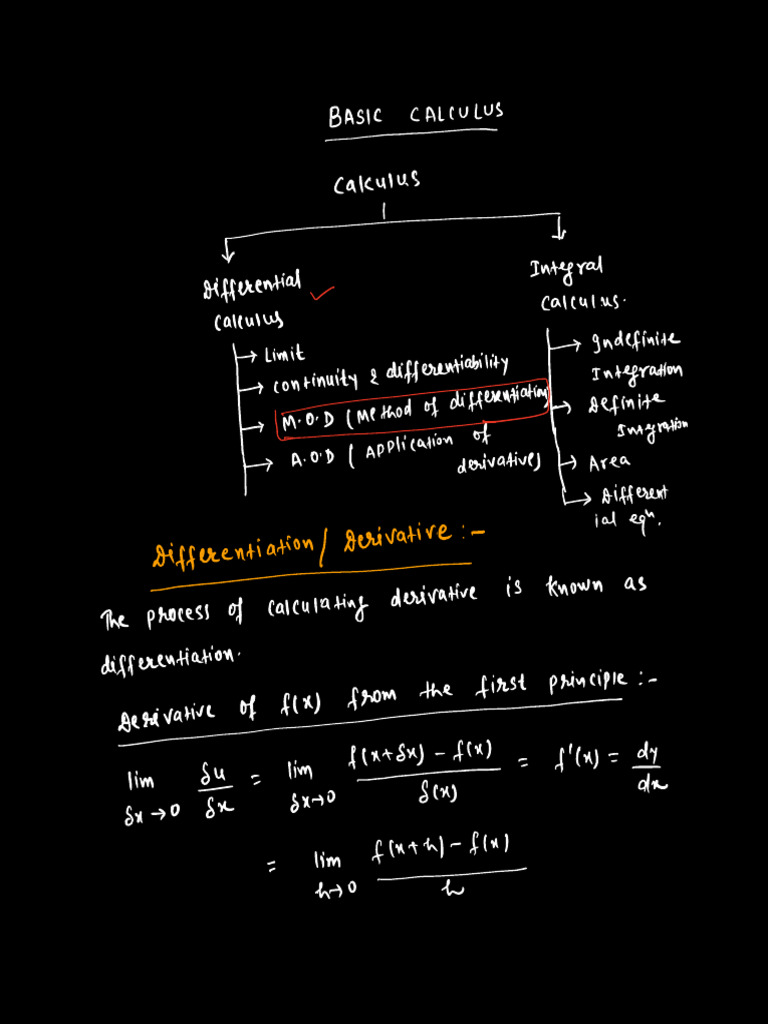 BASIC CALCULUS
Calculus
Differential
Calculus
→ Limit
→ Continuity & differentiability
→ M.O.D (Method of differentiation)
→ A.O.D ( Application of
derivative)
Integral
Calculus.
→ Indefinite
Integration
→ Definite
Integration
→ Area
→ Different
ial eqⁿ.
Differentiation/ Derivative :-
The process of calculating derivative is known as
differentiation.
Derivative of f(x) from the first principle :-
lim δx→0 δu/δx = lim δx→0 (f(x+δx) - f(x))/δ(x) = f'(x) = dy/dx
= lim h→0 (f(x+h) - f(x))/h